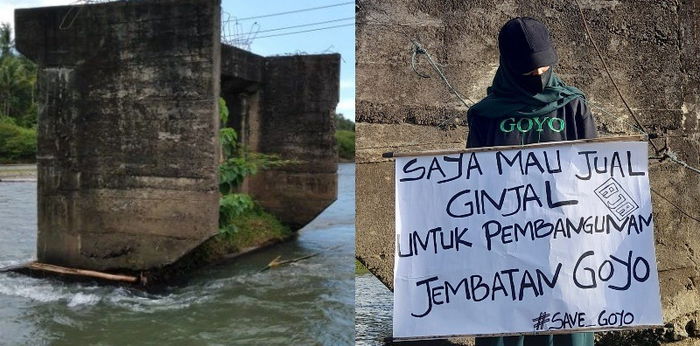 GOYO
SAYA MAU JUAL
GINJAL
AJA
UNTUK PEMBANGUNAN
JEMBATAN GOYO
#SAVE_GOYO